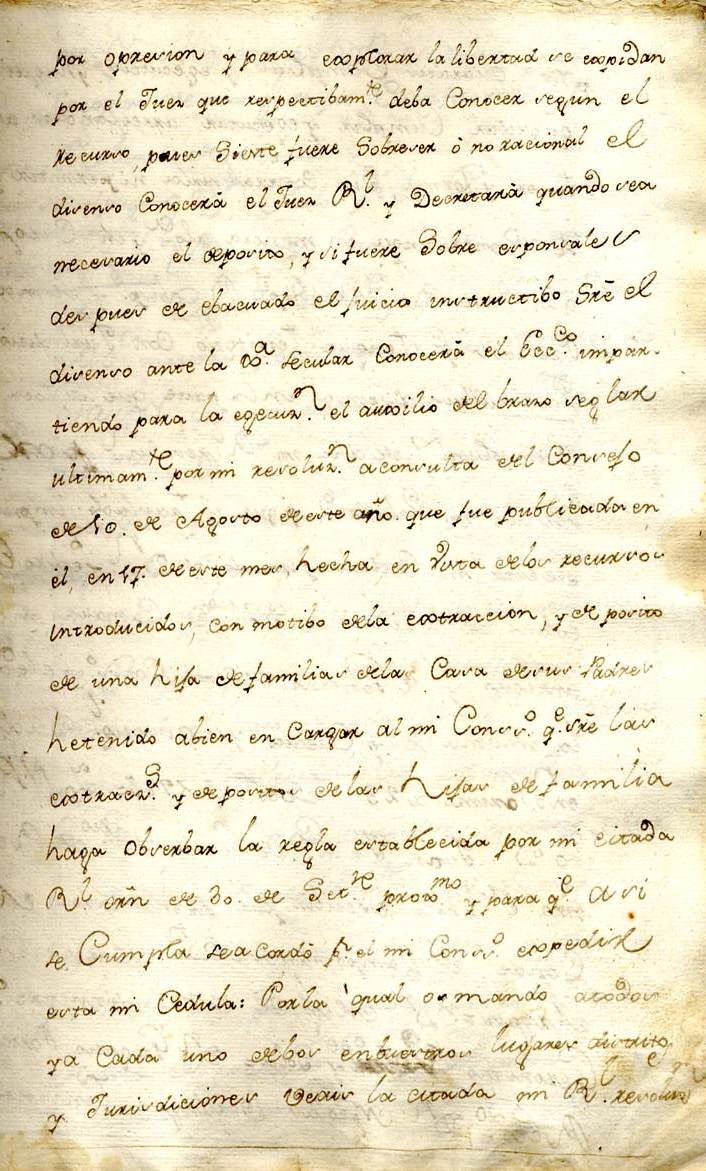 por opresion y para explorar la libertad se expidan
por el Juez que respectibam.te deba Conocer segun el
recurso, pues Sieste fuere Sobreser ò no racional el
disenso Conocerà el Juez R.l y Decretarà quando sea
necesario el deposito, y si fuere Sobre esponsales
des pues de ebacuado el juicio instructibo Sre el
disenso ante la Secular Conocerà el Ecc.co impar-
tiendo para la egecuz.n el auxilio del brazo seglar
ultimam.te por mi resoluz.n a consulta del Consejo
de 10. de Agosto de este año que fue publicada en
él, en 17. de este mes, hecha en vista de los recursos
introducidos, con motibo dela extraccion, y de posito
de una hija de familias delas Casa de sus Padres
hetenido abien en Cargar al mi Cons.o q.e sre las
extracz.s y depositos de las hijas de familia
haga obserbar la regla establecida por mi citada
R.l orn de 30. de Set.re proxmo y para q.e asi
se Cumpla se acordò p.r el mi Cons.o expedir
esta mi Cedula: Porla qual os mando atodos
ya Cada uno de bos en buestros lugares distritos
y Jurisdiciones Veais la citada mi R.l resoluz